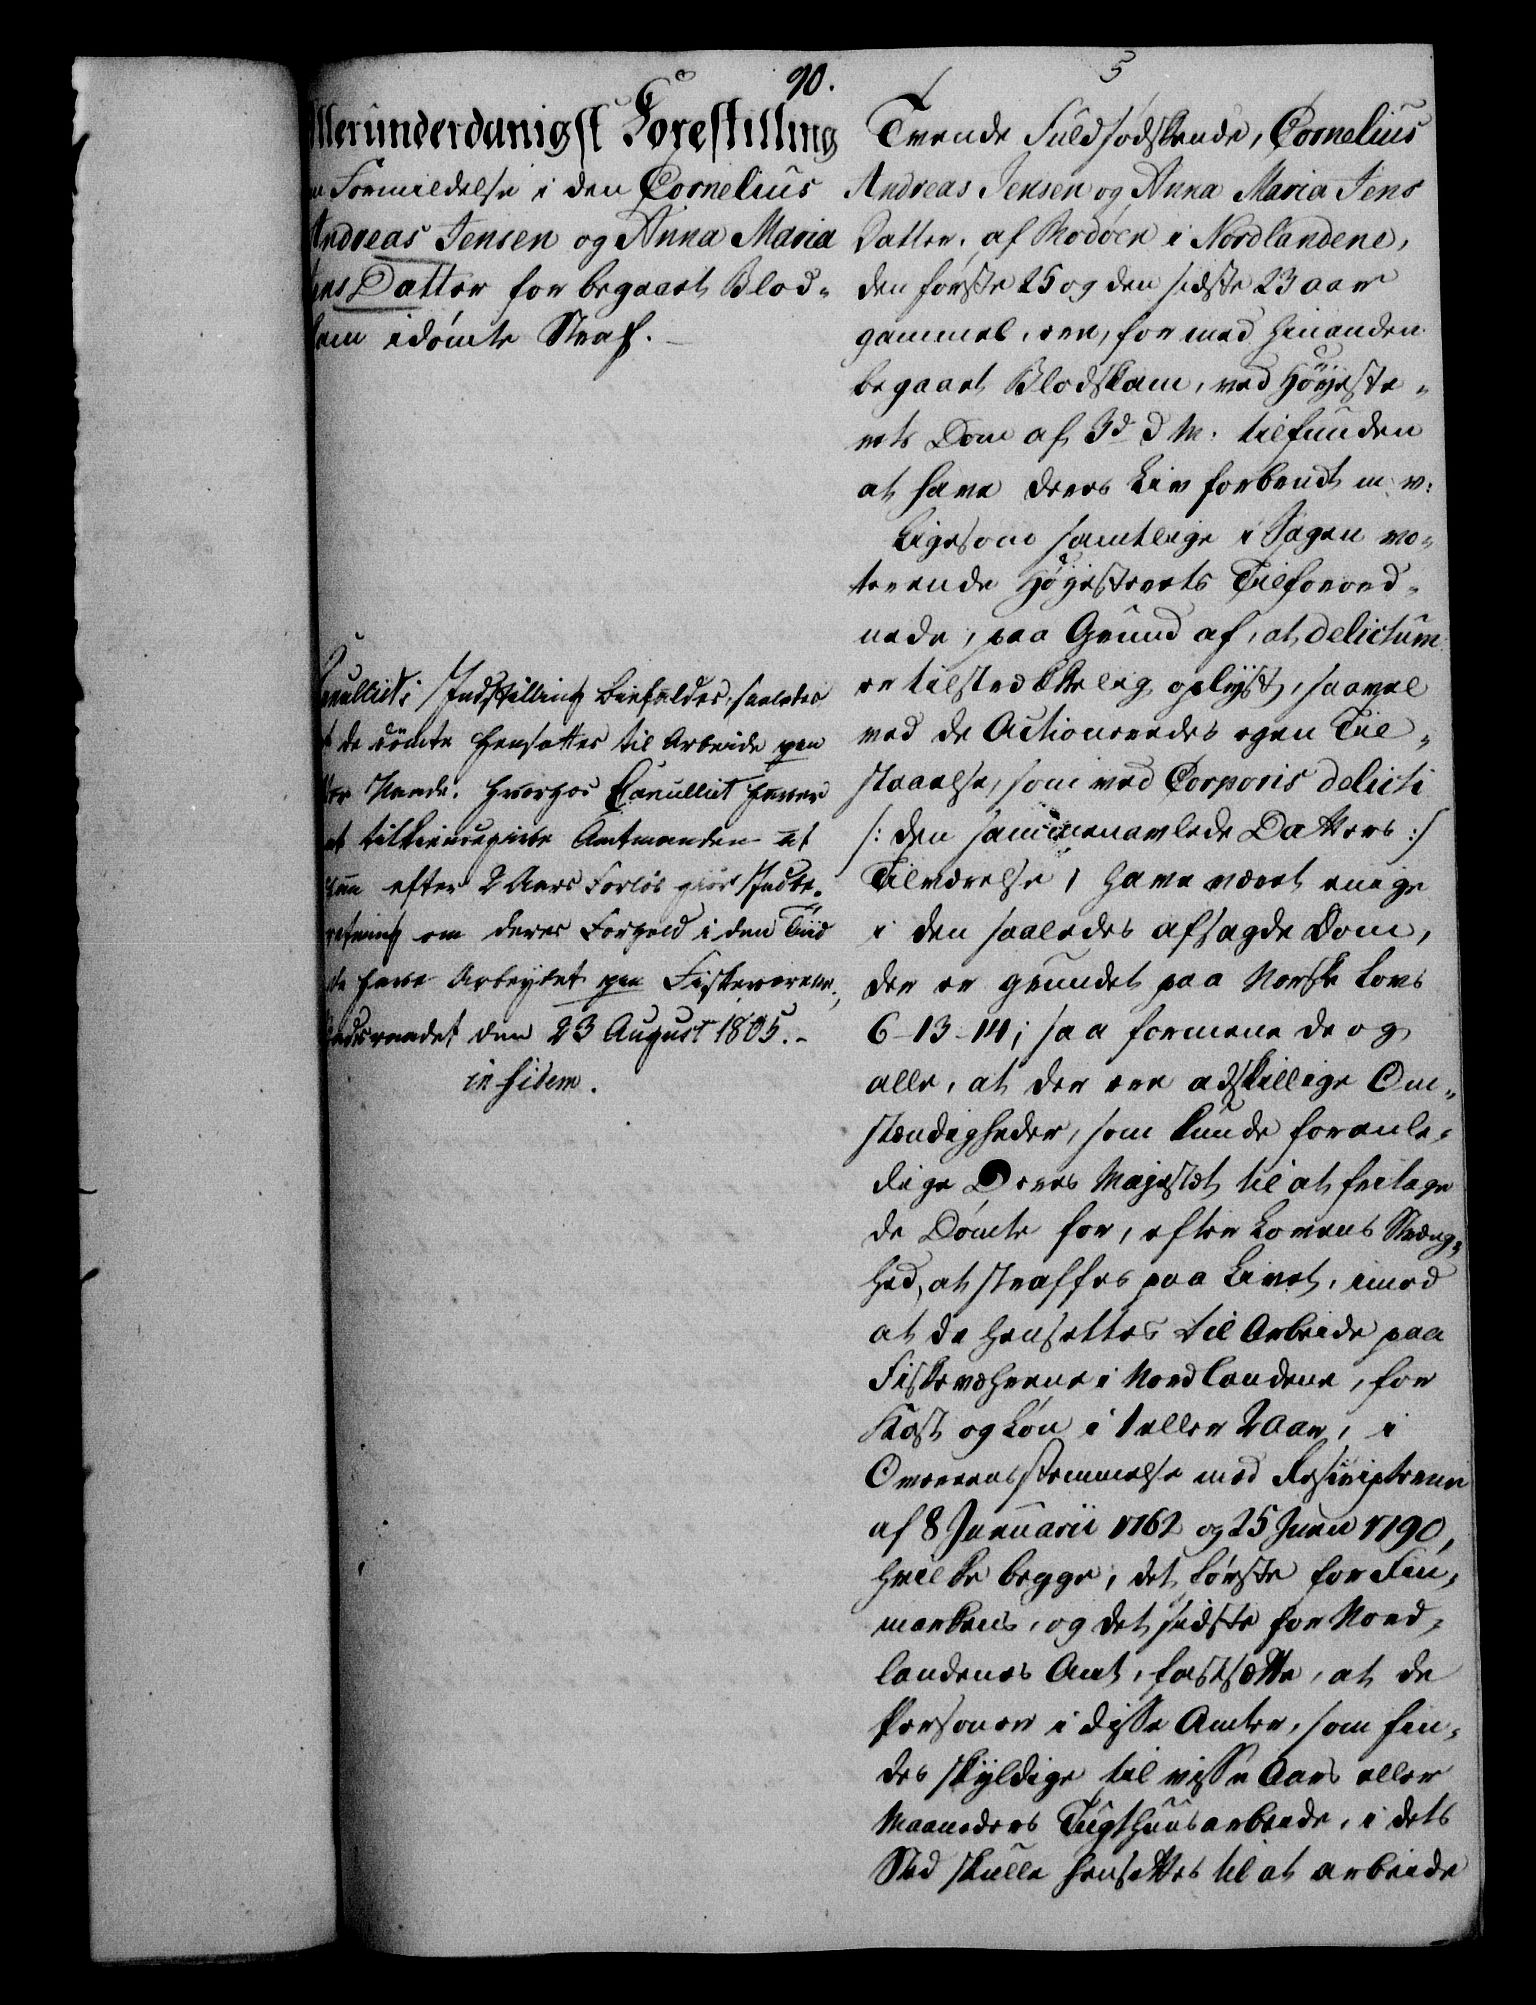 90.
5
Allerunderdanigst Forestilling
om Formildelse i den Cornelius
Andreas Jensen og Anna Maria
Jens Datter for begaaet Blod-
skam idømte Straf.
Cancelliets Indstilling bifaldes, saaledes
at de dømte hensættes til Arbeide paa
vor Naade. Hvorhos Cancelliet haver
at tilkiendegive Amtmanden at
han efter 2 Aars Forløb giør Indbe-
retning om deres Forhold i den Tiid
de have Arbeydet paa Fiskeværene.
Stadsraadet den 23 August 1805.
in fidem.
Tvende Fuldsødskende, Cornelius
Andreas Jensen og Anna Maria Jens
Datter, af Rodøen i Nordlandene,
den første 25 og den sidste 23 aar
gammel, ere, for med hinanden
begaaet Blodskam, ved Høyeste-
rets Dom af 3d d. M. tilfunden
at have deres Liv forbrudt m. v.
Ligesom samtlige i Sagen vo-
terende Høyesterets Tilforord-
nede, paa Grund af, at delictum
er tilstrækkelig oplyst, saavel
ved de Actioneredes egen Til-
staaelse, som ved Corporis delicti
/: den sammenavlede Datters :/
Tilværelse, have været enige
i den saaledes afsagde Dom,
der er grundet paa Norske Lovs
6-13-14; saa formene de og
alle, at der ere adskillige Om-
stændigheder, som kunde foranle-
dige Deres Majestæt til at fritage
de Dømte for, efter Lovens Stræng-
hed, at straffes paa Livet, imod
at de hensættes til Arbeide paa
Fiskeværene i Nordlandene, for
Kost og Løn i 1 eller 2 Aar, i
Overeensstemmelse med Rescripterne
af 8 Januarii 1762 og 25 Juni 1790,
hvilke begge, det første for Fin-
markens, og det sidste for Nord-
landenes Amt, fastsætte, at de
Personer i disse Amter, som fin-
des skyldige til visse Aars eller
Maaneders Tugthuusarbeide, i dets
Sted skulle hensættes til at arbeide